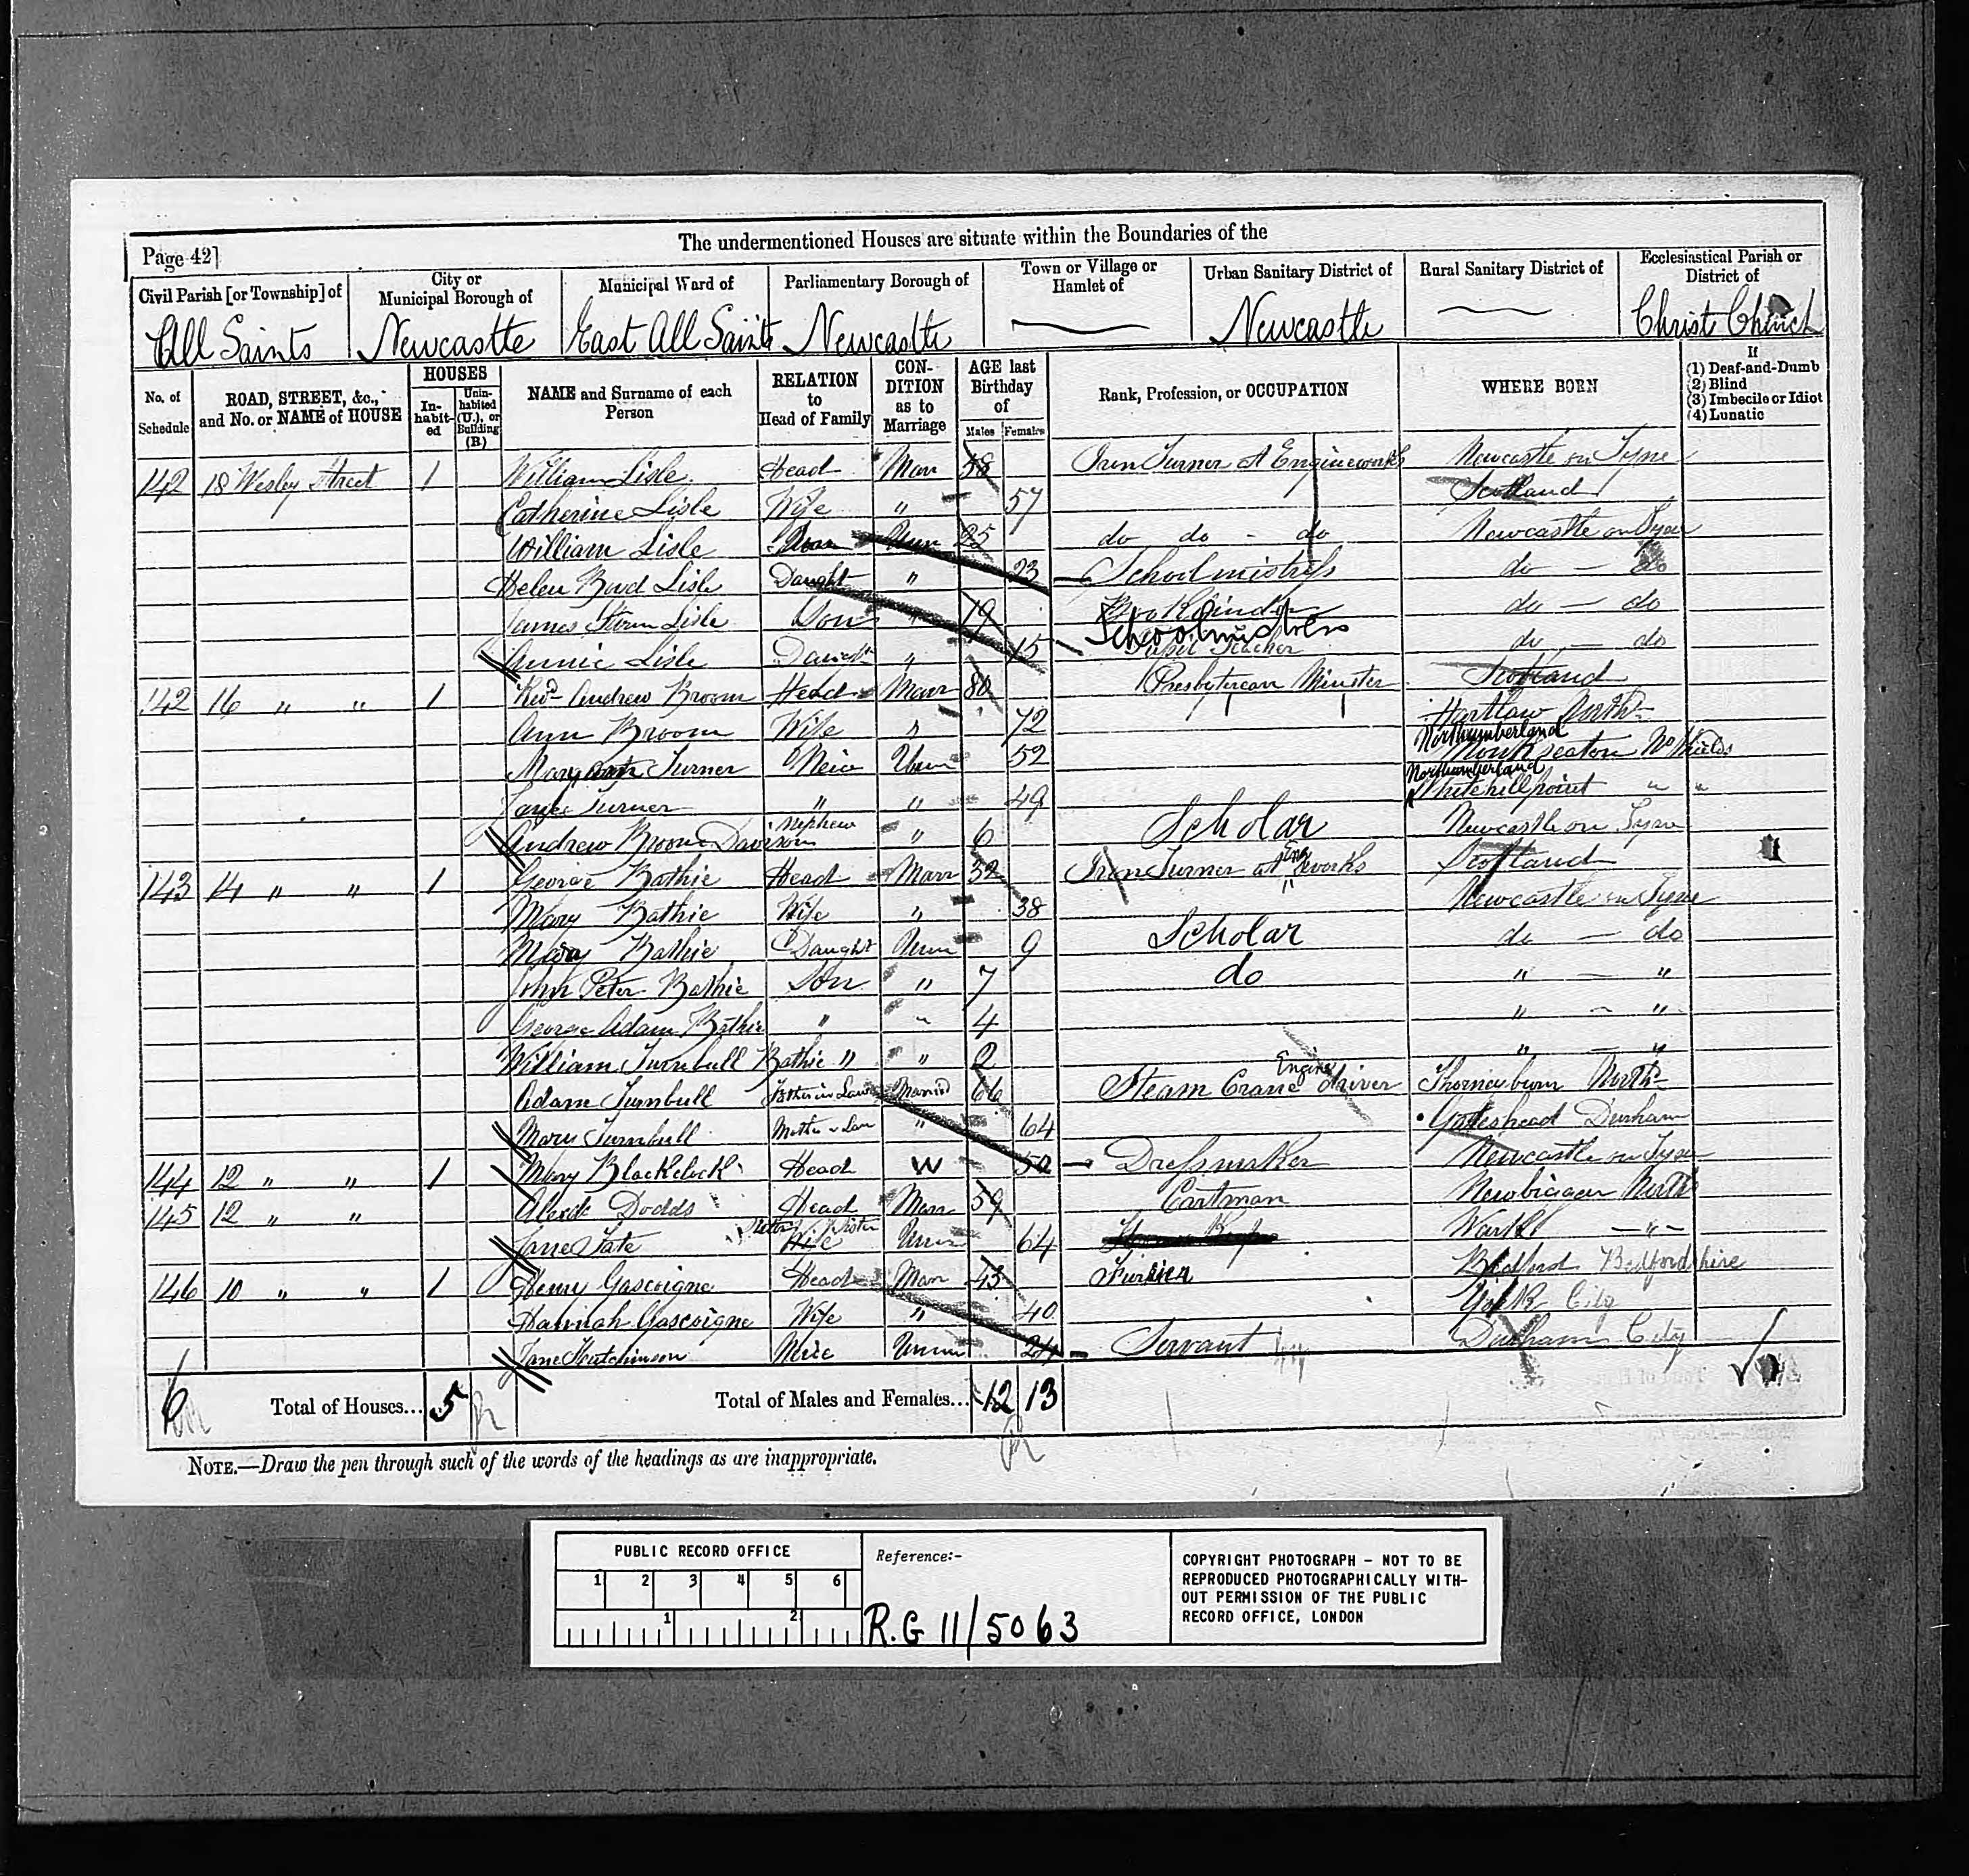 Page 42]
The undermentioned Houses are situate within the Boundaries of the
Civil Parish [or Township] of | City or Municipal Borough of | Municipal Ward of | Parliamentary Borough of | Town or Village or Hamlet of | Urban Sanitary District of | Rural Sanitary District of | Ecclesiastical Parish or District of
All Saints | Newcastle | East All Saints | Newcastle | — | Newcastle | — | Christ Church
No. of Schedule | ROAD, STREET, &c., and No. or NAME of HOUSE | HOUSES In-habit-ed | Unin-habited (U.), or Building (B.) | NAME and Surname of each Person | RELATION to Head of Family | CON-DITION as to Marriage | AGE last Birthday of Males | Females | Rank, Profession, or OCCUPATION | WHERE BORN | If (1) Deaf-and-Dumb (2) Blind (3) Imbecile or Idiot (4) Lunatic
142 18 Wesley Street 1 William Lisle Head Marr 58 Iron Turner At Engineworks Newcastle on Tyne
Catherine Lisle Wife " 57 Scotland
William Lisle Unm 25 do do - do Newcastle on Tyne
Helen Boyd Lisle Daught " 23 Schoolmistress do — do
James Lisle Son 19 Bookbinder do — do
Annie Lisle Daught " 15 Schoolmistress Pupil Teacher do — do
142 16 " " 1 Revd Andrew Broom Head Marr 80 Presbyterean Minster Scotland
Ann Broom Wife " 72 Hartlaw North
Turner Neice Unm 52 Northumberland Monkseaton No Shields
Turner " " 49 Northumberland Whitehillpoint " "
Andrew Broom Davison Nephew " 6 Scholar Newcastle on Tyne
143 14 " " 1 George Bathie Head Marr 32 Iron Turner at Eng works Scotland
Mary Bathie Wife " 38 Newcastle on Tyne
Mary Bathie Daught Unm 9 Scholar do — do
John Peter Bathie Son " 7 do " — "
George Adam Bathie " " 4 " — "
William Turnbull Bathie " " 2 " — "
Adam Turnbull Father in Law Married 66 Steam Crane Engine driver Thorneyburn North
Mary Turnbull Mother in Law " 64 Gateshead Durham
144 12 " " 1 Mary Blacklock Head W 52 Dressmaker Newcastle on Tyne
145 12 " " Alexdr Dodds Head Marr 59 Cartman Newbiggen North
Jane Tate Sister Unm 64 —"—
146 10 " " 1 Henry Gascoigne Head Marr 43 Bedford Bedfordshire
Hannah Gascoigne Wife " 40 York City
Jane Hutchinson Neice Unm 24 Servant Durham City
6 Total of Houses... 5 Total of Males and Females... 12 13
NOTE.—Draw the pen through such of the words of the headings as are inappropriate.
PUBLIC RECORD OFFICE
1 2 3 4 5 6
1 2
Reference:-
R.G 11/5063
COPYRIGHT PHOTOGRAPH - NOT TO BE
REPRODUCED PHOTOGRAPHICALLY WITH-
OUT PERMISSION OF THE PUBLIC
RECORD OFFICE, LONDON